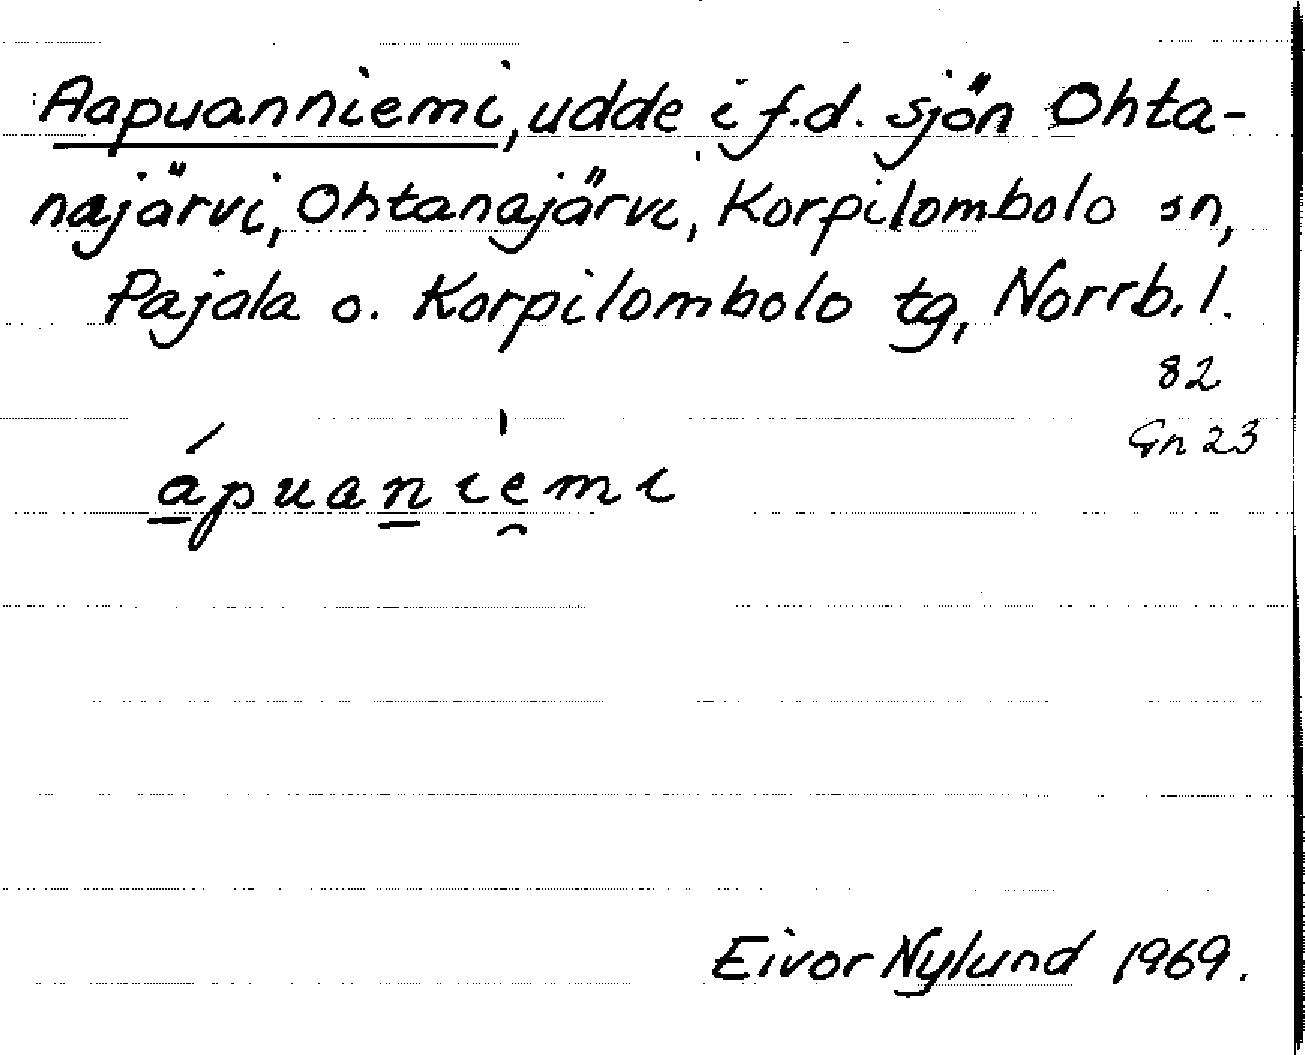 Aapuanniemi, udde i f.d. sjön Ohta-
najärvi, Ohtanajärvi, Korpilombolo sn,
Pajala o. Korpilombolo tg, Norrb. l.
82
Gn 23
ápuaniemi
Eivor Nylund 1969.